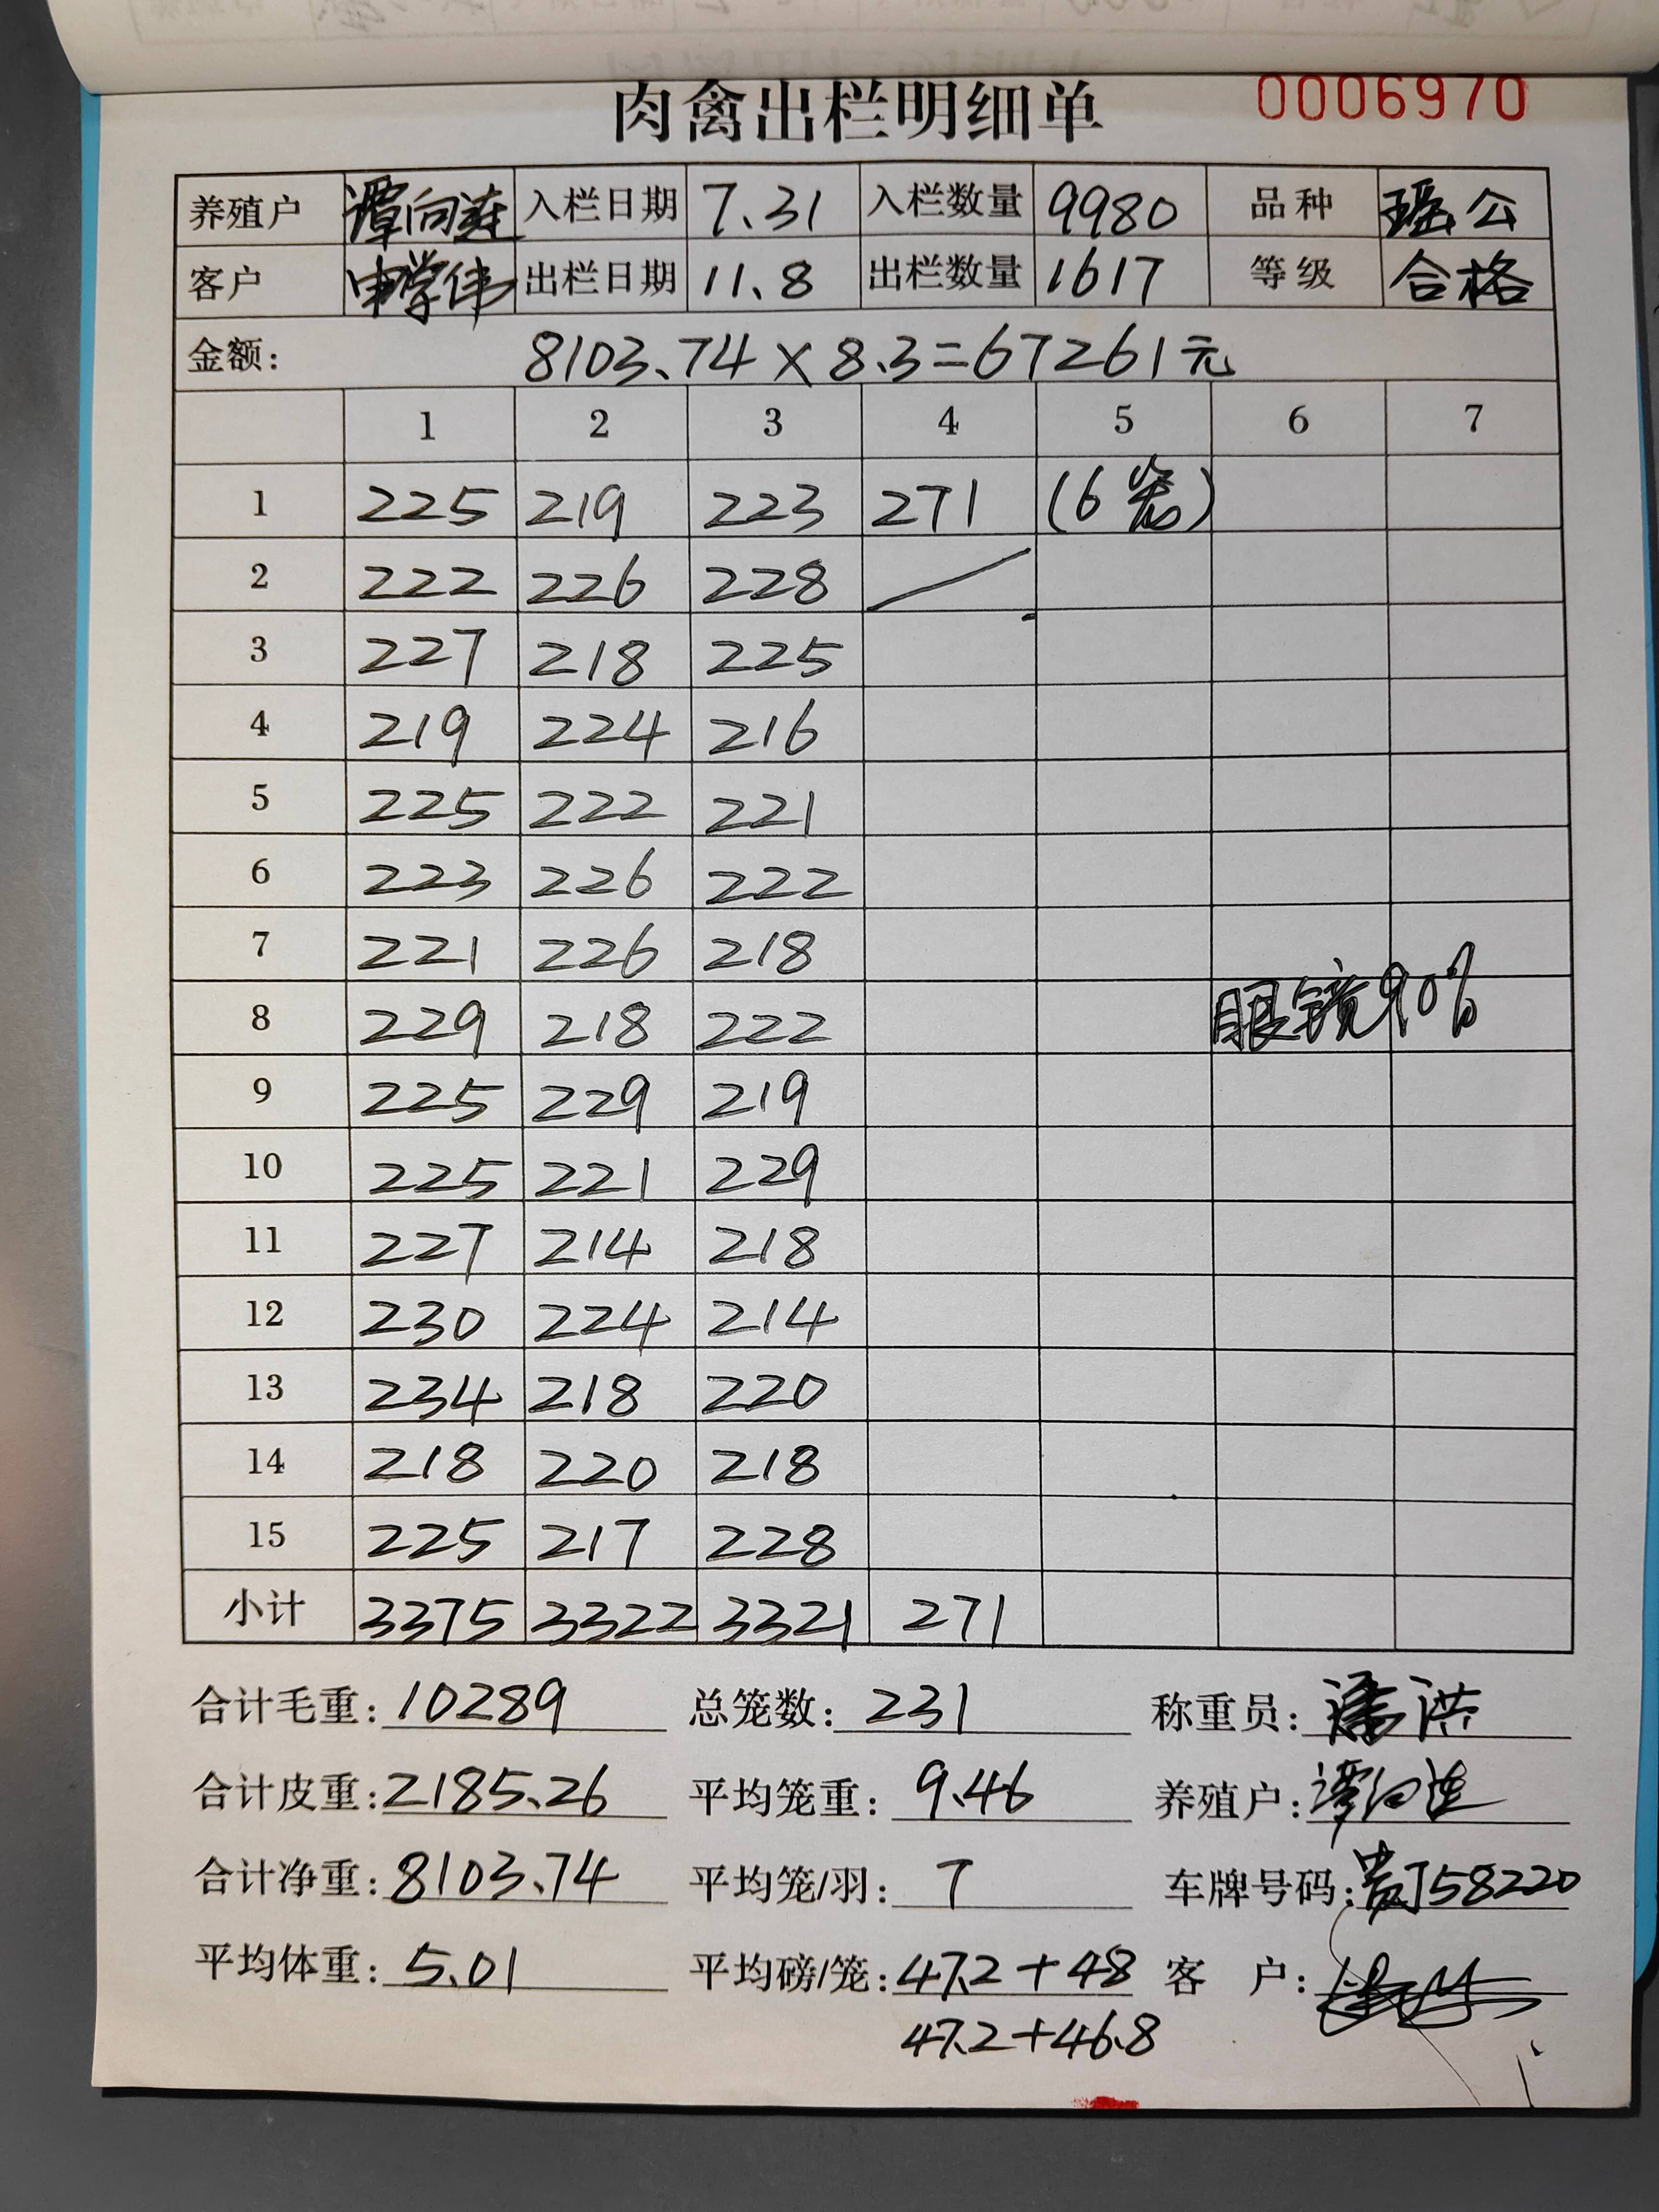 肉禽出栏明细单 0006970
养殖户 谭向莲 入栏日期 7.31 入栏数量 9980 品种 瑶公
客户 申学伟 出栏日期 11.8 出栏数量 1617 等级 合格
金额: 8103.74×8.3=67261元
1 2 3 4 5 6 7
1 225 219 223 271 (6笼)
2 222 226 228
3 227 218 225
4 219 224 216
5 225 222 221
6 223 226 222
7 221 226 218
8 229 218 222 眼镜90%
9 225 229 219
10 225 221 229
11 227 214 218
12 230 224 214
13 234 218 220
14 218 220 218
15 225 217 228
小计 3375 3322 3321 271
合计毛重: 10289 总笼数: 231 称重员: 潘洪
合计皮重: 2185.26 平均笼重: 9.46 养殖户: 谭向莲
合计净重: 8103.74 平均笼/羽: 7 车牌号码: 贵J58220
平均体重: 5.01 平均磅/笼: 47.2+48 客 户:
47.2+46.8